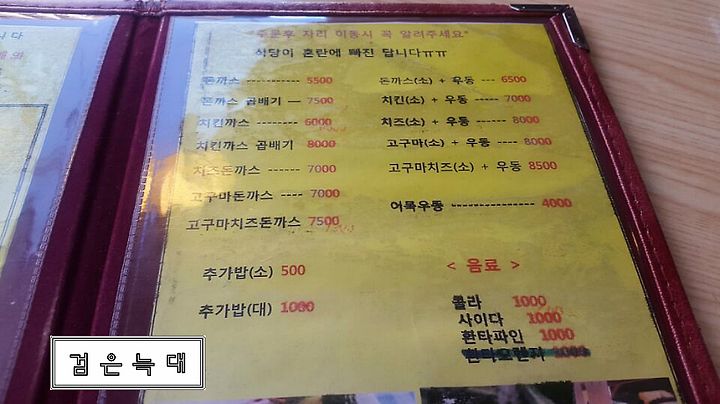 "주문후 자리 이동시 꼭 알려주세요"
식당이 혼란에 빠진 답니다ㅠㅠ
돈까스 ---------- 5500
돈까스 곱배기 — 7500
치킨까스 -------- 6000
치킨까스 곱배기 8000
치즈돈까스 ------ 7000
고구마돈까스 ---- 7000
고구마치즈돈까스 7500
추가밥(소) 500
추가밥(대) 1000
돈까스(소) + 우동 --- 6500
치킨(소) + 우동 ----- 7000
치즈(소) + 우동 ------ 8000
고구마(소) + 우동 ---- 8000
고구마치즈(소) + 우동 8500
어묵우동 ---------------- 4000
< 음료 >
콜라 1000
사이다 1000
환타파인 1000
환타오렌지 1000
검은늑대